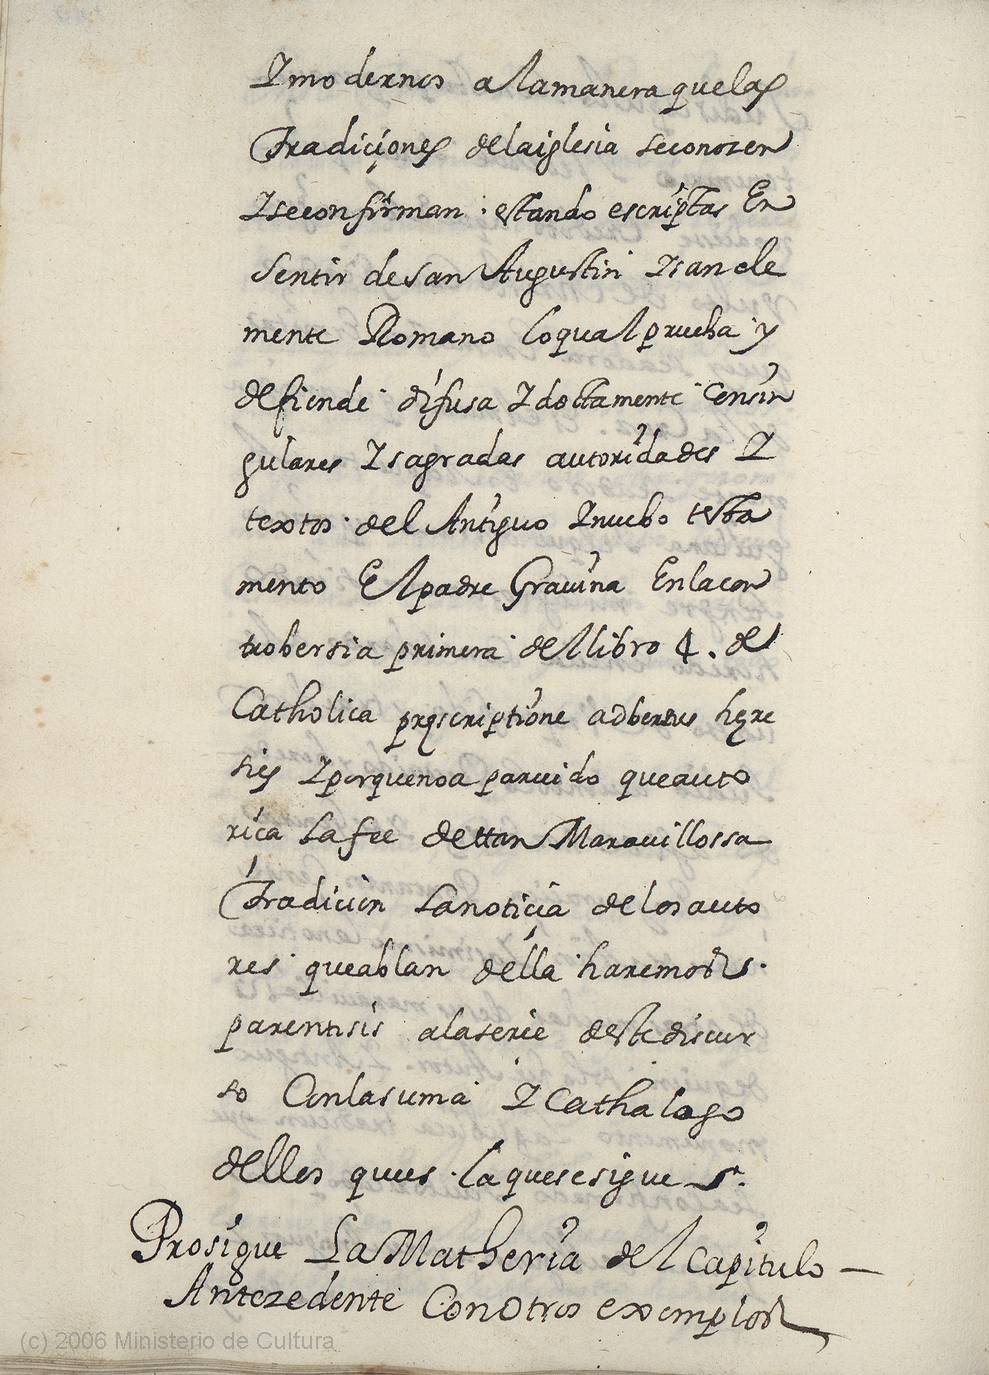 Y modernos a la manera que las
Tradiciones de la iglesia se conozen
Y se confirman. estando escriptas En
Sentir de San Augustin Y san cle
mente Romano lo qual prueba y
defiende difusa Y doctamente Con sin
gulares Y sagradas autoridades Y
textos del Antiguo Y nuebo testa
mento El padre Gravina En la con
trobersia primera del libro 4. de
Catholica prescriptione adbersus hęre
sies Y porque no a parecido que auto
rica La fee de ttan Maravillossa
Tradicion La noticia de los auto
res que ablan della haremos
parentisis a la serie deste discur
so Con la suma Y Cathalago
dellos que es. la que se sigue
Prosigue La Matheria del capitulo
Antezedente Con Otros exemplos
(c) 2006 Ministerio de Cultura